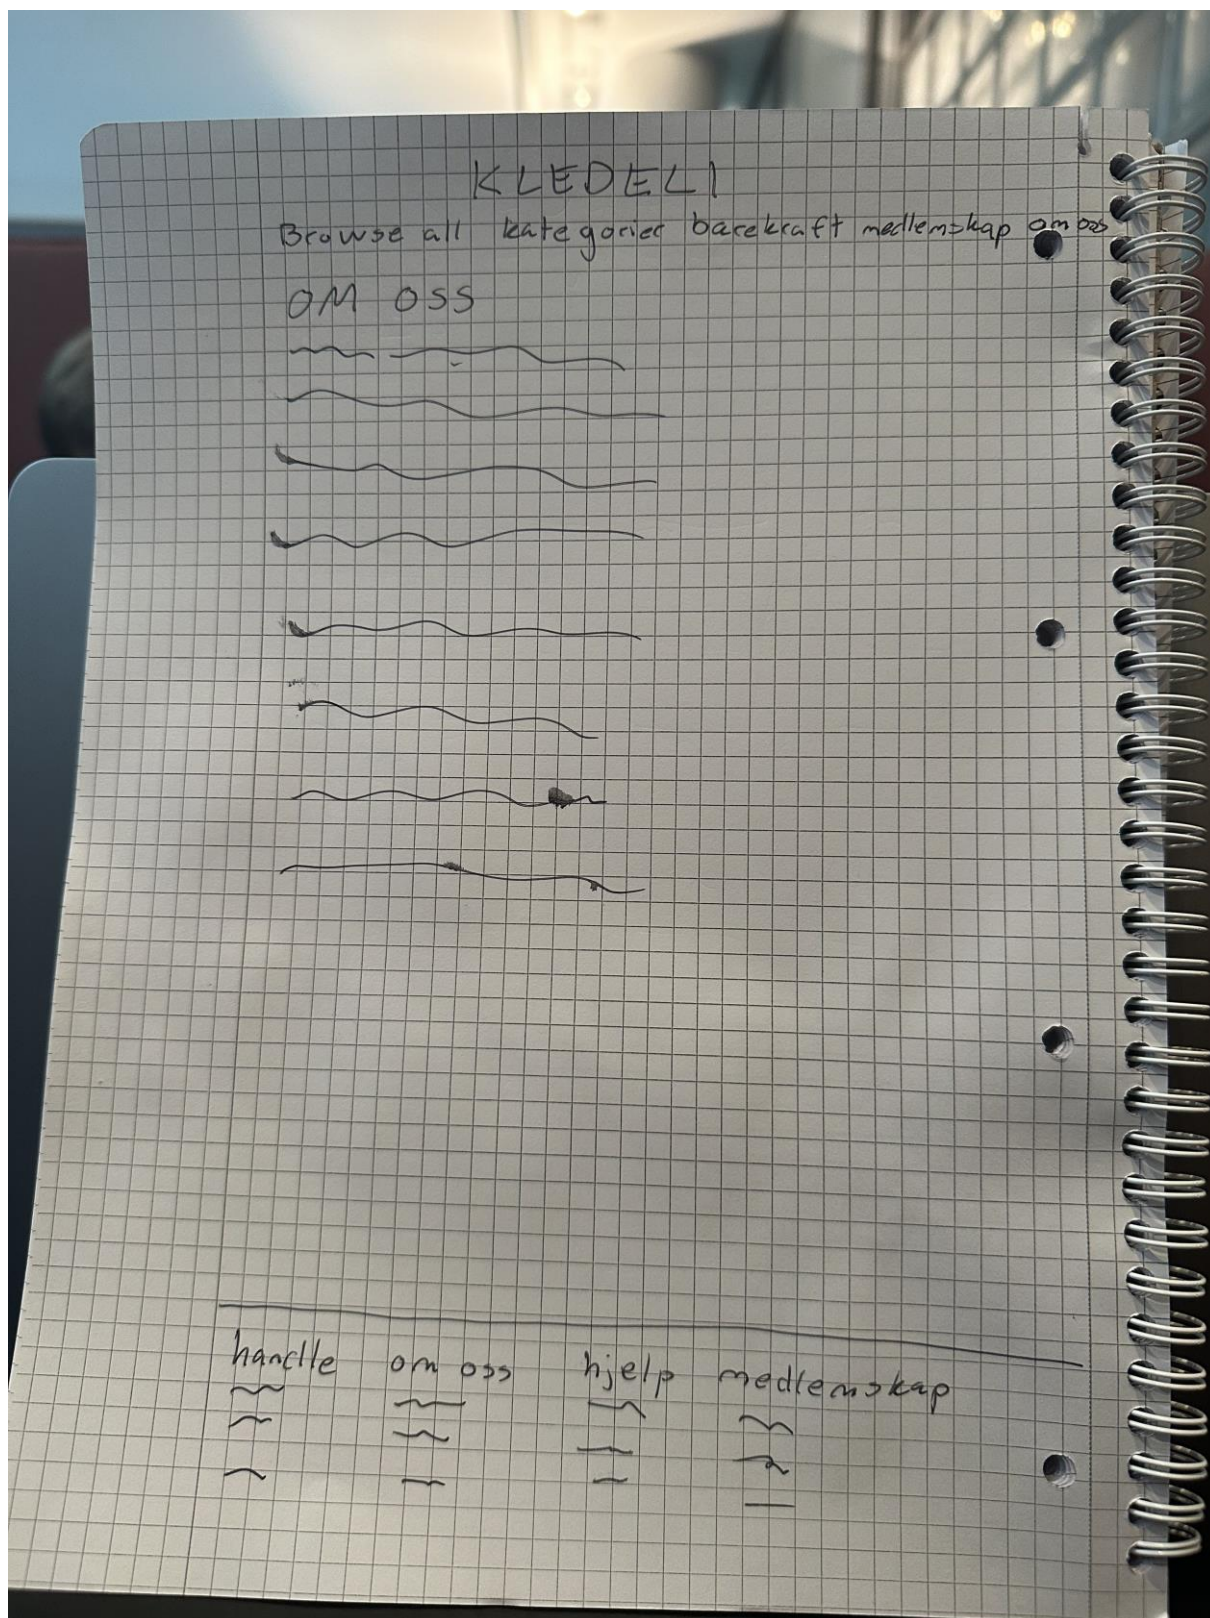 KLEDELI
Browse all kategorier barekraft medlemskap om oss
OM OSS
handle om oss hjelp medlemskap